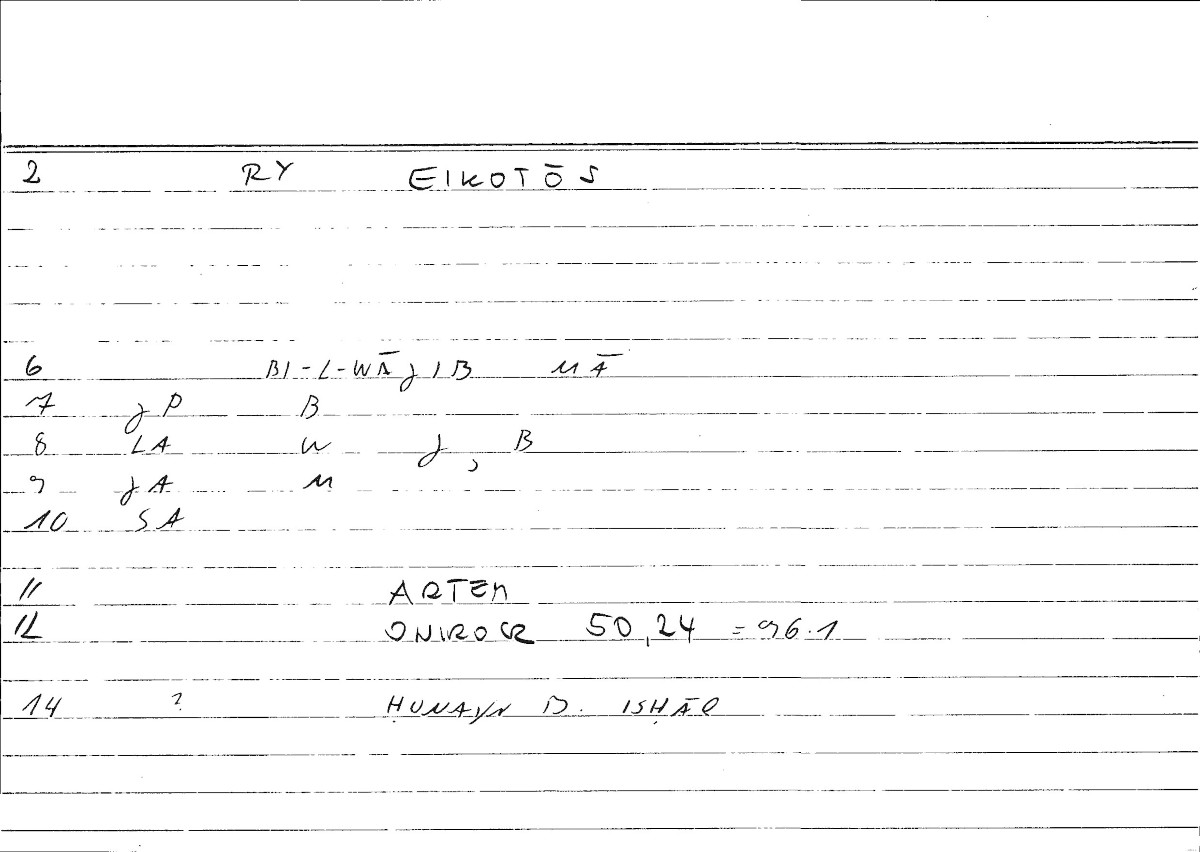 2 RY EIKOTŌS
6 BI-L-WĀJIB MĀ
7 JP B
8 LA W J, B
9 JA M
10 SA
11 ARTEM
12 ONIROCR 50,24 = 96.1
14 ? ḤUNAYN B. ISḤĀQ